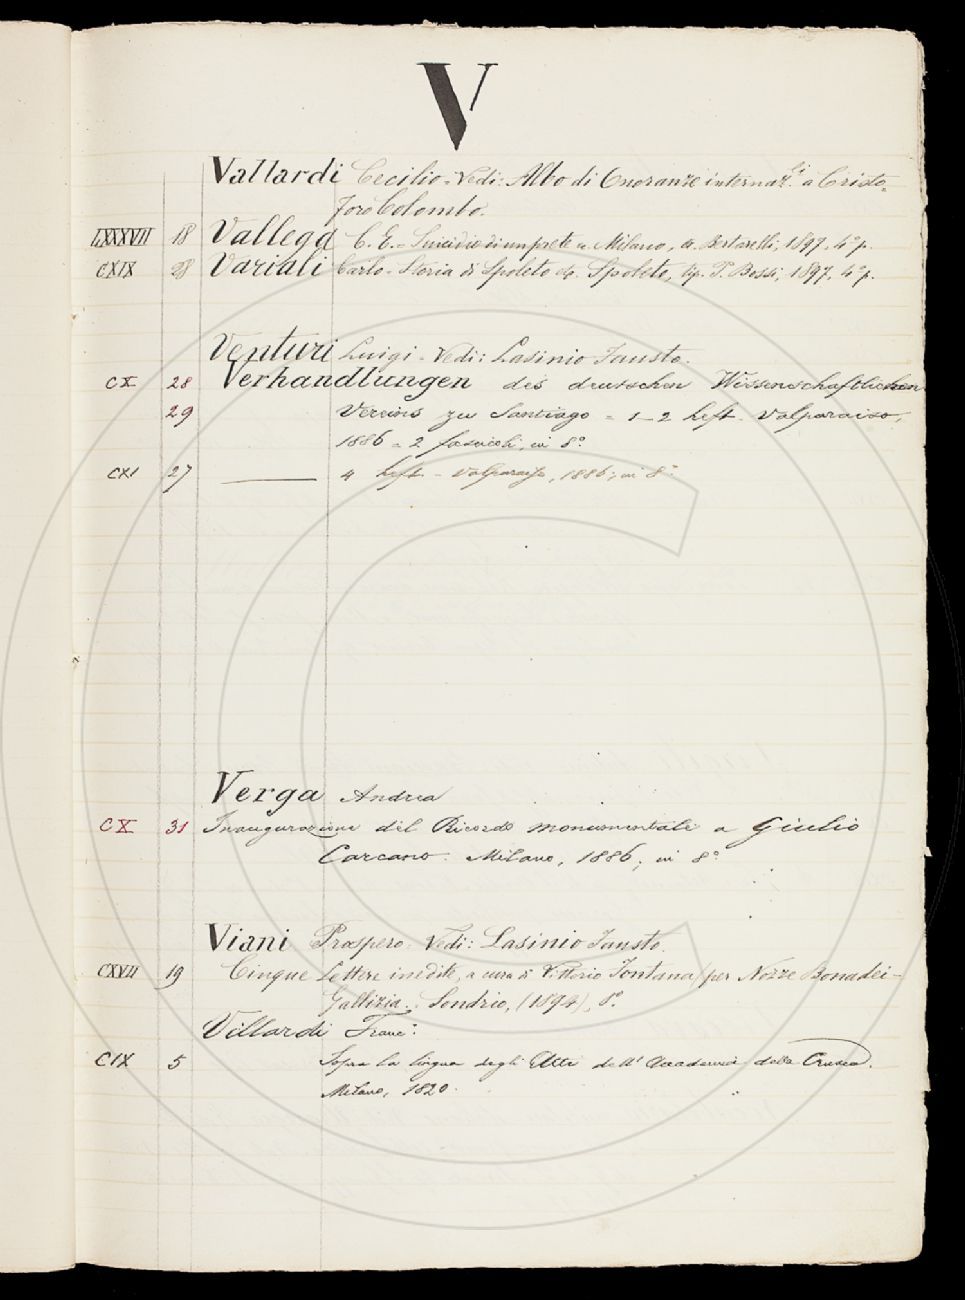 V
Vallardi Cecilio - Vedi: Albo di Onoranze internaz.li a Cristo-
foro Colombo.
LXXXVII 18 Vallega C. E. - Suicidio di un prete - Milano, Bertarelli, 1897, 4° p.
CXIX 28 Variali Carlo - Storia di Spoleto Spoleto, tip. P. Bossi, 1897, 4° p.
Venturi Luigi - Vedi: Lasinio Fausto.
CX 28 Verhandlungen des deutschen Wissenschaftlichen
29 Vereins zu Santiago - 1-2 heft - Valparaiso,
1886 - 2 fascicoli, in 8°
CXI 27 ——— 4 heft - Valparaiso, 1886, in 8°
Verga Andrea
CX 31 Inaugurazione del Ricordo monumentale a Giulio
Carcano. Milano, 1886, in 8°
Viani Prospero. Vedi: Lasinio Fausto.
CXVII 19 Cinque lettere inedite, a cura di Vittorio Fontana (per Nozze Bonadei-
Gallizia. Sondrio, (1894), 8°
Villardi Franc°:
CIX 5 Sopra la lingua degli Atti dell' Accademia della Crusca.
Milano, 1820.